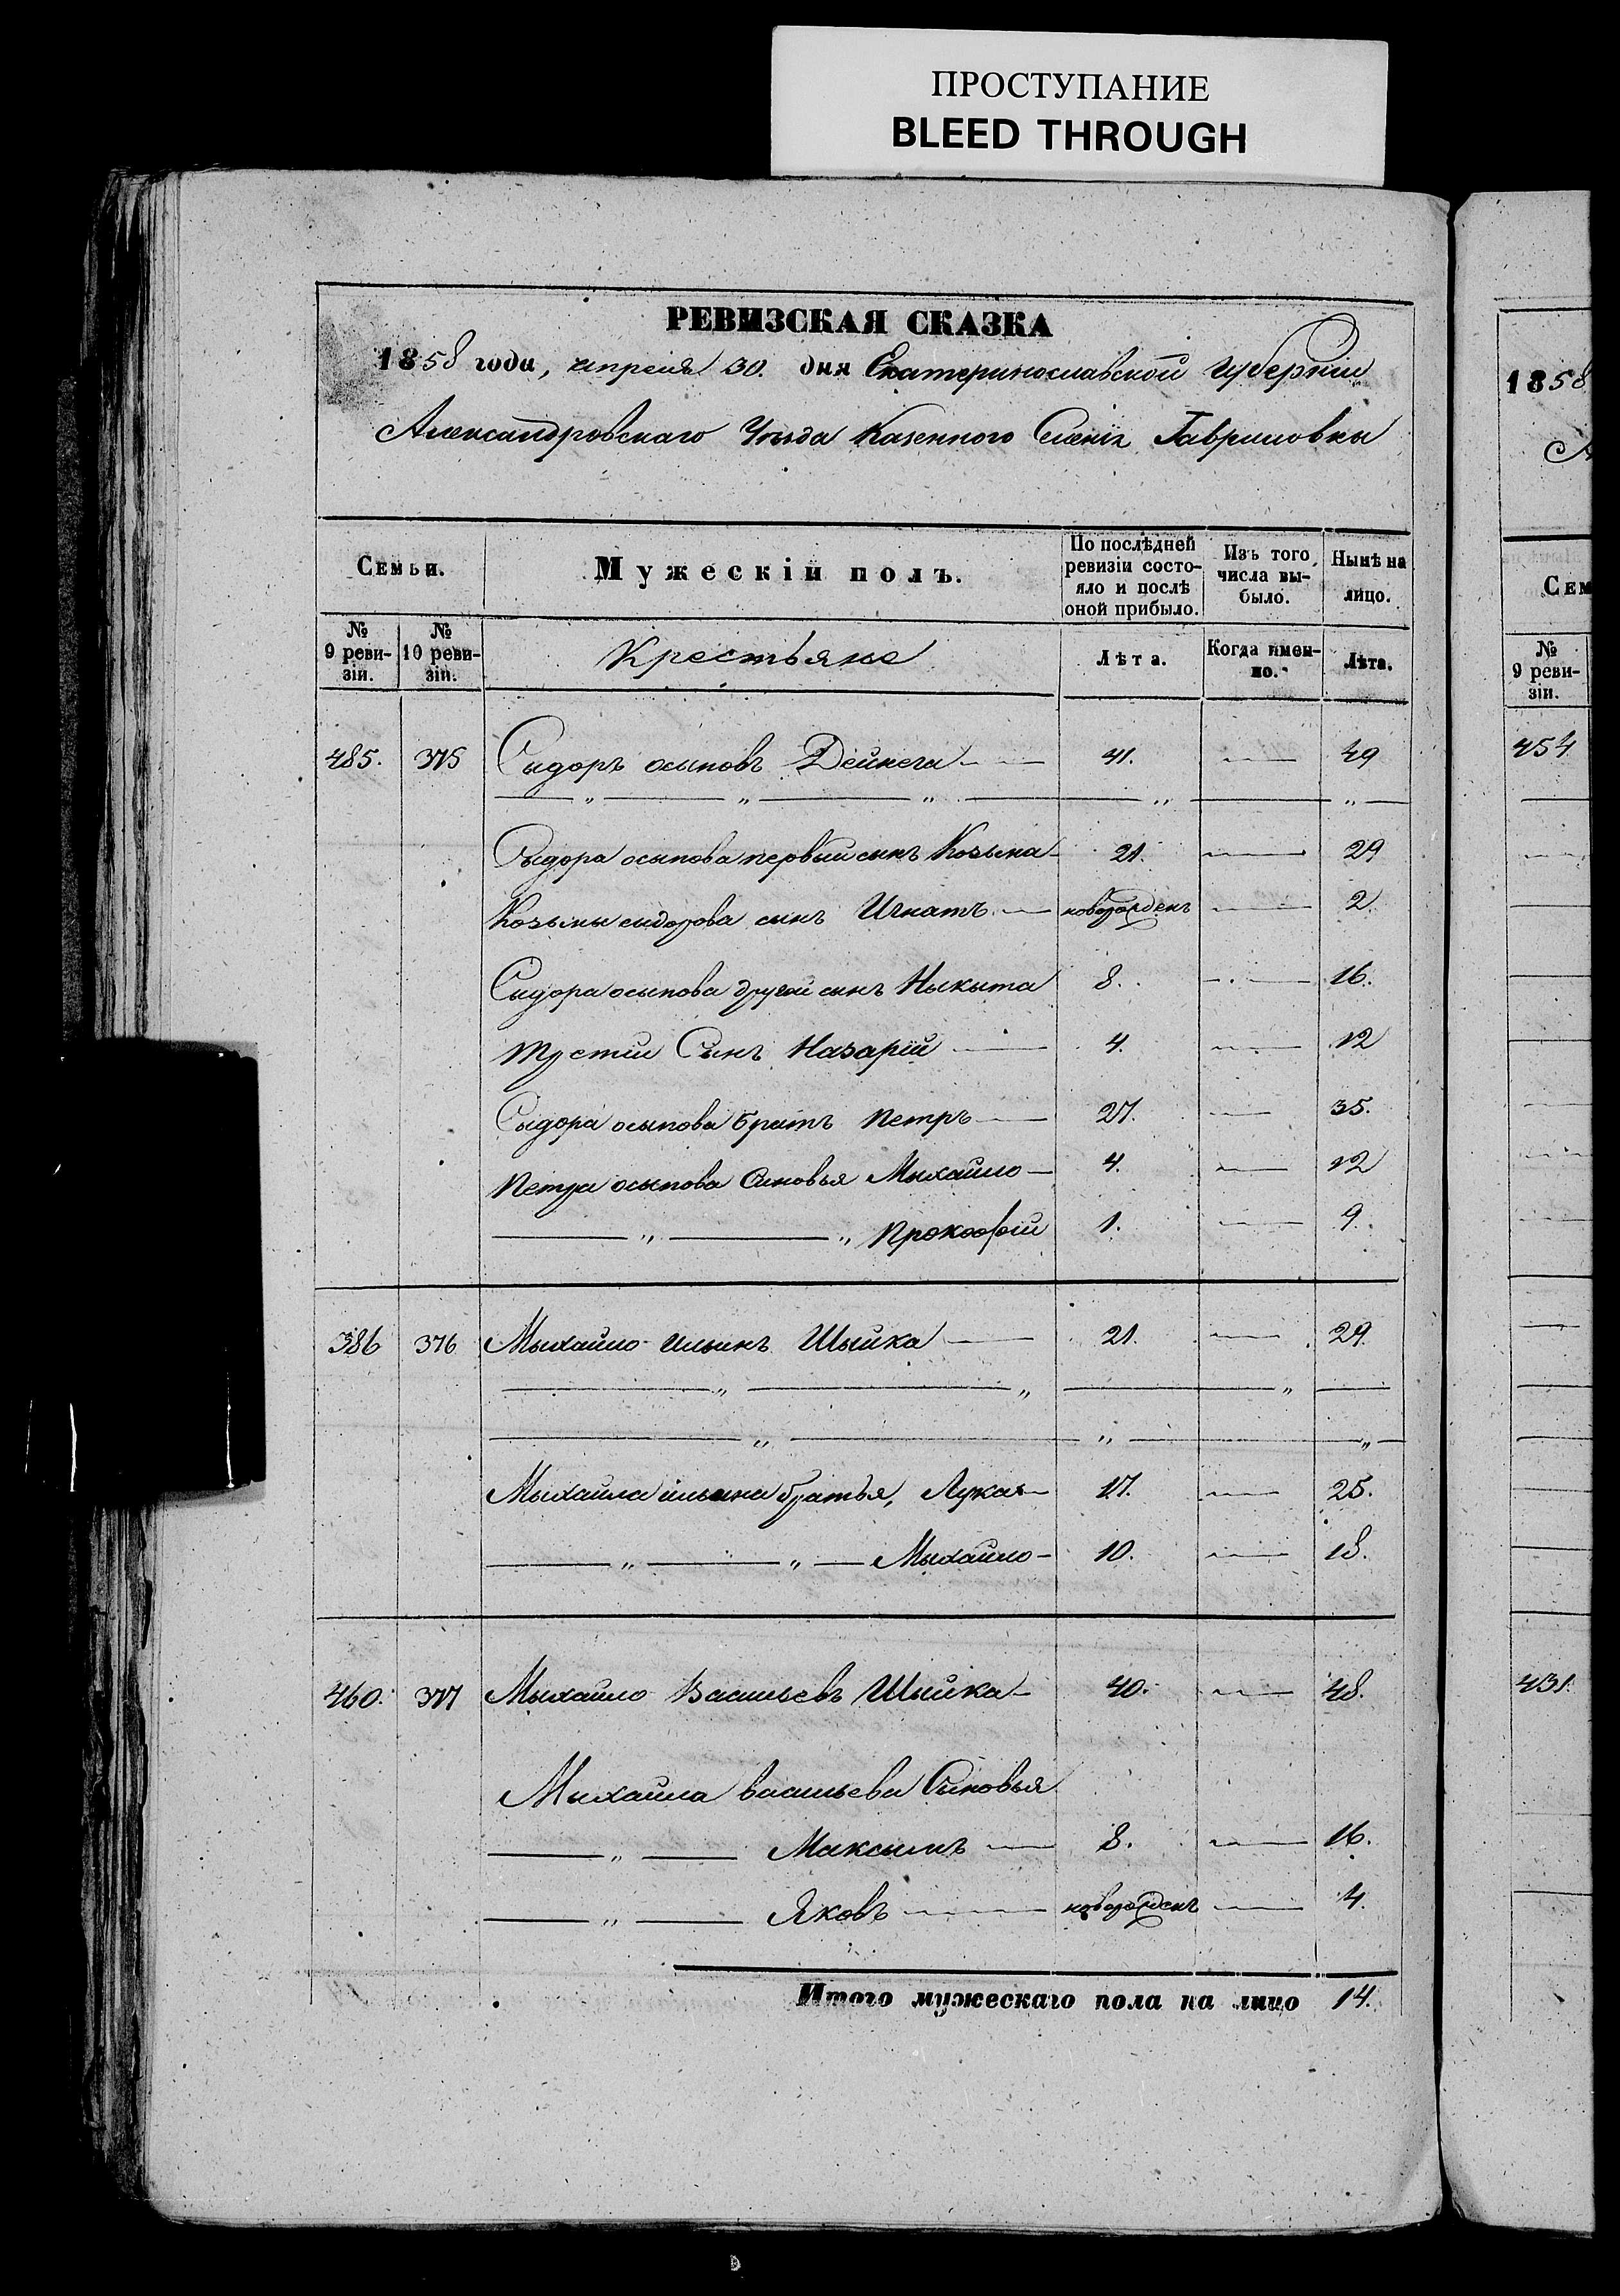 ПРОСТУПАНИЕ
BLEED THROUGH
РЕВИЗСКАЯ СКАЗКА
1858 года, апреля 30. дня Екатеринославской Губерніи
Александровскаго Уѣзда Казенного Селенія Гавриловки
Семьи. Мужескій полъ. По послѣдней ревизіи состо-яло и послѣ оной прибыло. Изъ того числа вы-было. Нынѣ на лицо.
№ 9 реви-зіи. № 10 реви-зіи. Крестьяне Лѣта. Когда имен-но. Лѣта.
485. 375 Сыдоръ осыповъ Дейнега 41. 49
Сыдора осыпова первый сынъ Козьма 21. 29
Козьмы сыдорова сынъ Игнатъ новорожденъ 2.
Сыдора осыпова другой сынъ Ныкыта 8. 16.
Третіи Сынъ Назарій 4. 12
Сыдора осыпова братъ Петръ 27. 35.
Петра осыпова Сыновья Мыхайло 4. 12
„ „ Прокофій 1. 9.
386 376 Мыхайло ильинъ Шыйка 21. 29.
Мыхайла ильина братья, Лука 17. 25.
„ „ Мыхайло 10. 18.
460. 377 Мыхайло Васильевъ Шыйка 40. 48.
Мыхайла васильева Сыновья
„ Максымъ 8. 16.
„ Яковъ новорожденъ 4.
Итого мужескаго пола на лицо 14.
1858
А
Сем
№ 9 реви-зіи.
454
431.